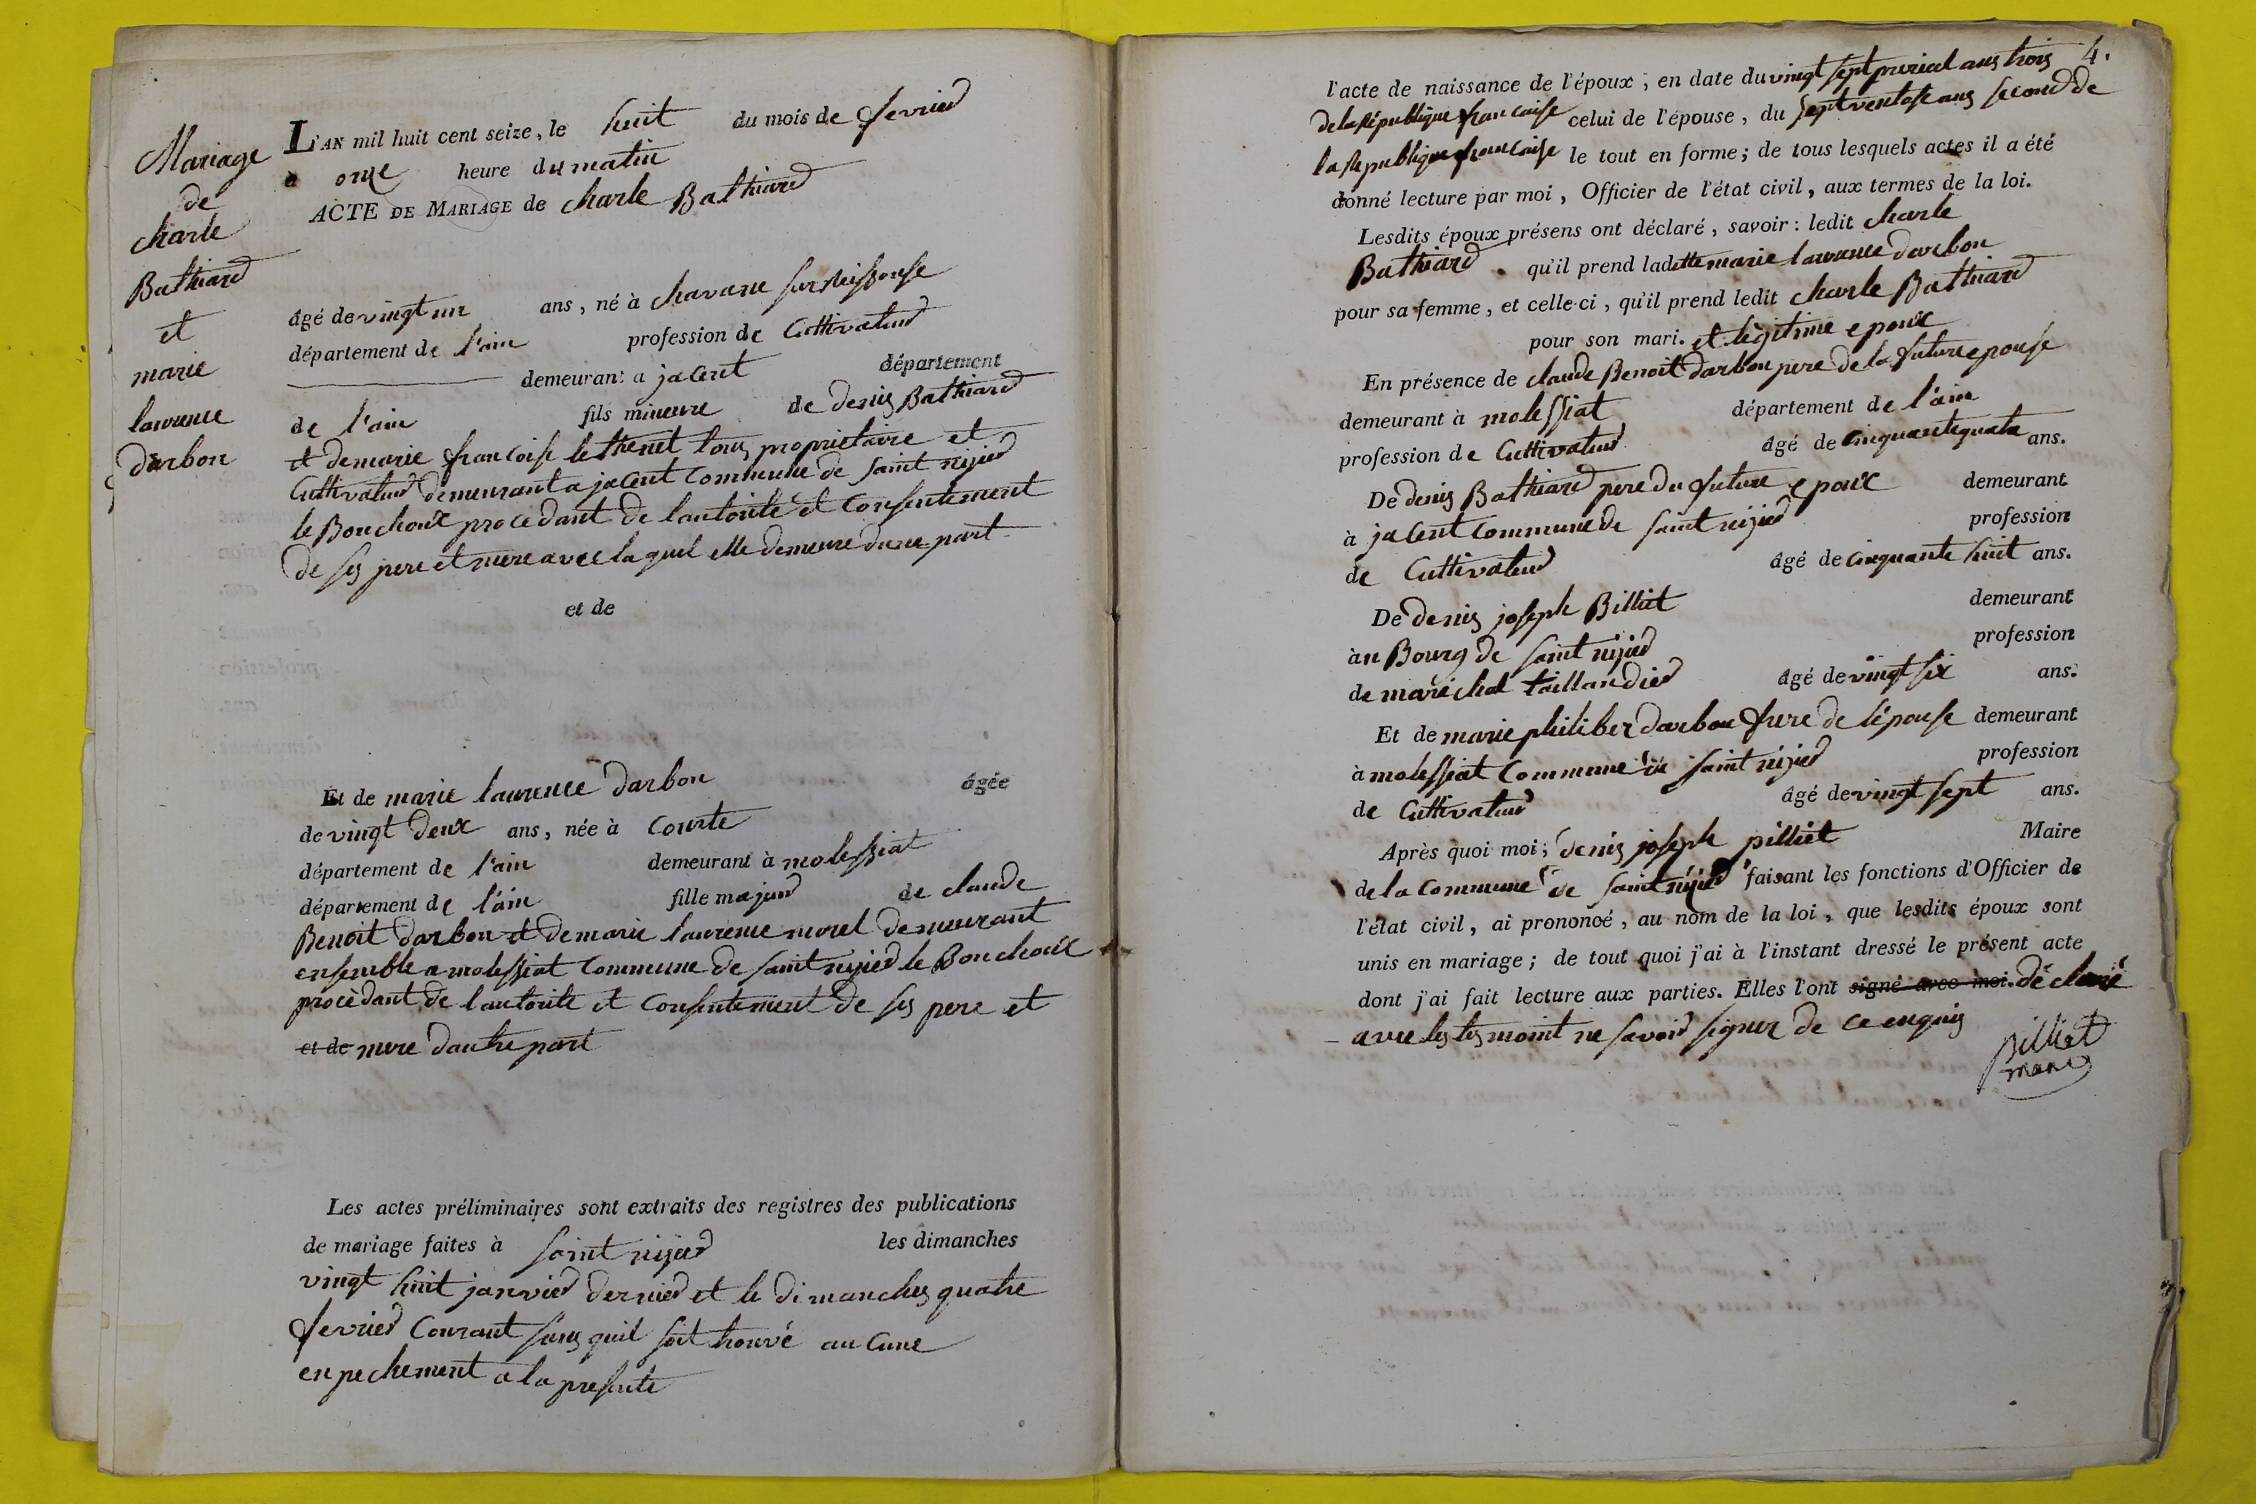 Mariage
de
charle
Bathiard
et
marie
laurence
darbon
L'AN mil huit cent seize, le huit du mois de fevrier
à onze heure du matin
ACTE DE MARIAGE de charle Bathiard
âgé de vingt un ans, né à chavane sur suissouse
département de l'ain profession de Cultivateur
demeurant a jacent département
de l'ain fils mineure de denis Bathiard
et de marie francoise lethenet tous proprietaire et
Cultivateur demeurant a jacent commune de saint nizier
le Bouchoux procedant de lautorité et consentement
de ses pere et mere avec laquel elle demeure dune part
et de
Et de marie laurence darbon âgée
de vingt deux ans, née à Courte
département de l'ain demeurant à molessiat
département de l'ain fille majeur de claude
Benoit darbon et de marie laurence morel demeurant
ensemble a molessiat Commune de saint nizier le Bouchoux
procèdant de lautorite et Consentement de ses pere et
et de mere dautre part
Les actes préliminaires sont extraits des registres des publications
de mariage faites à saint nizier les dimanches
vingt huit janvier dernier et le dimanches quatre
fevrier Courant sans quil soit trouvé aucune
enpechement a la presente
4.
l'acte de naissance de l'époux, en date du vingt sept prerial ans trois
de la République francaise celui de l'épouse, du sept ventose ans second de
la Republique francaise le tout en forme; de tous lesquels actes il a été
donné lecture par moi, Officier de l'état civil, aux termes de la loi.
Lesdits époux présens ont déclaré, savoir: ledit charle
Bathiard qu'il prend ladette marie laurence darbon
pour sa femme, et celle-ci, qu'il prend ledit charle Bathiard
pour son mari. et légitime epoux
En présence de claude Benoit darbon pere de la future epouse
demeurant à molessiat département de l'ain
profession de Cultivateur âgé de cinquante quatre ans.
De denis Bathiard pere du future epoux demeurant
à jacent commune de saint nizier profession
de Cultivateur âgé de cinquante huit ans.
De denis joseph Billiet demeurant
àu Bourg de saint nizier profession
de maréchal taillandier âgé de vingt six ans.
Et de marie philiber darbon frere de l'épouse demeurant
à molessiat Commune de saint nizier profession
de Cultivateur âgé de vingt sept ans.
Après quoi moi, denis joseph pilliet Maire
de la Commune de saint nizier faisant les fonctions d'Officier de
l'état civil, ai prononcé, au nom de la loi, que lesdits époux sont
unis en mariage; de tout quoi j'ai à l'instant dressé le présent acte
dont j'ai fait lecture aux parties. Elles l'ont signé avec moi. déclaré
avec les tesmoint ne savoir signer de ce enquis
pilliet
maire